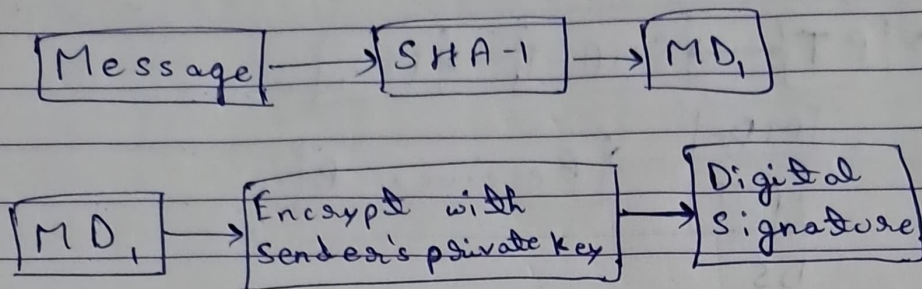 Message → SHA-1 → MD₁
MD₁ → Encrypt with sender's private key → Digital Signature